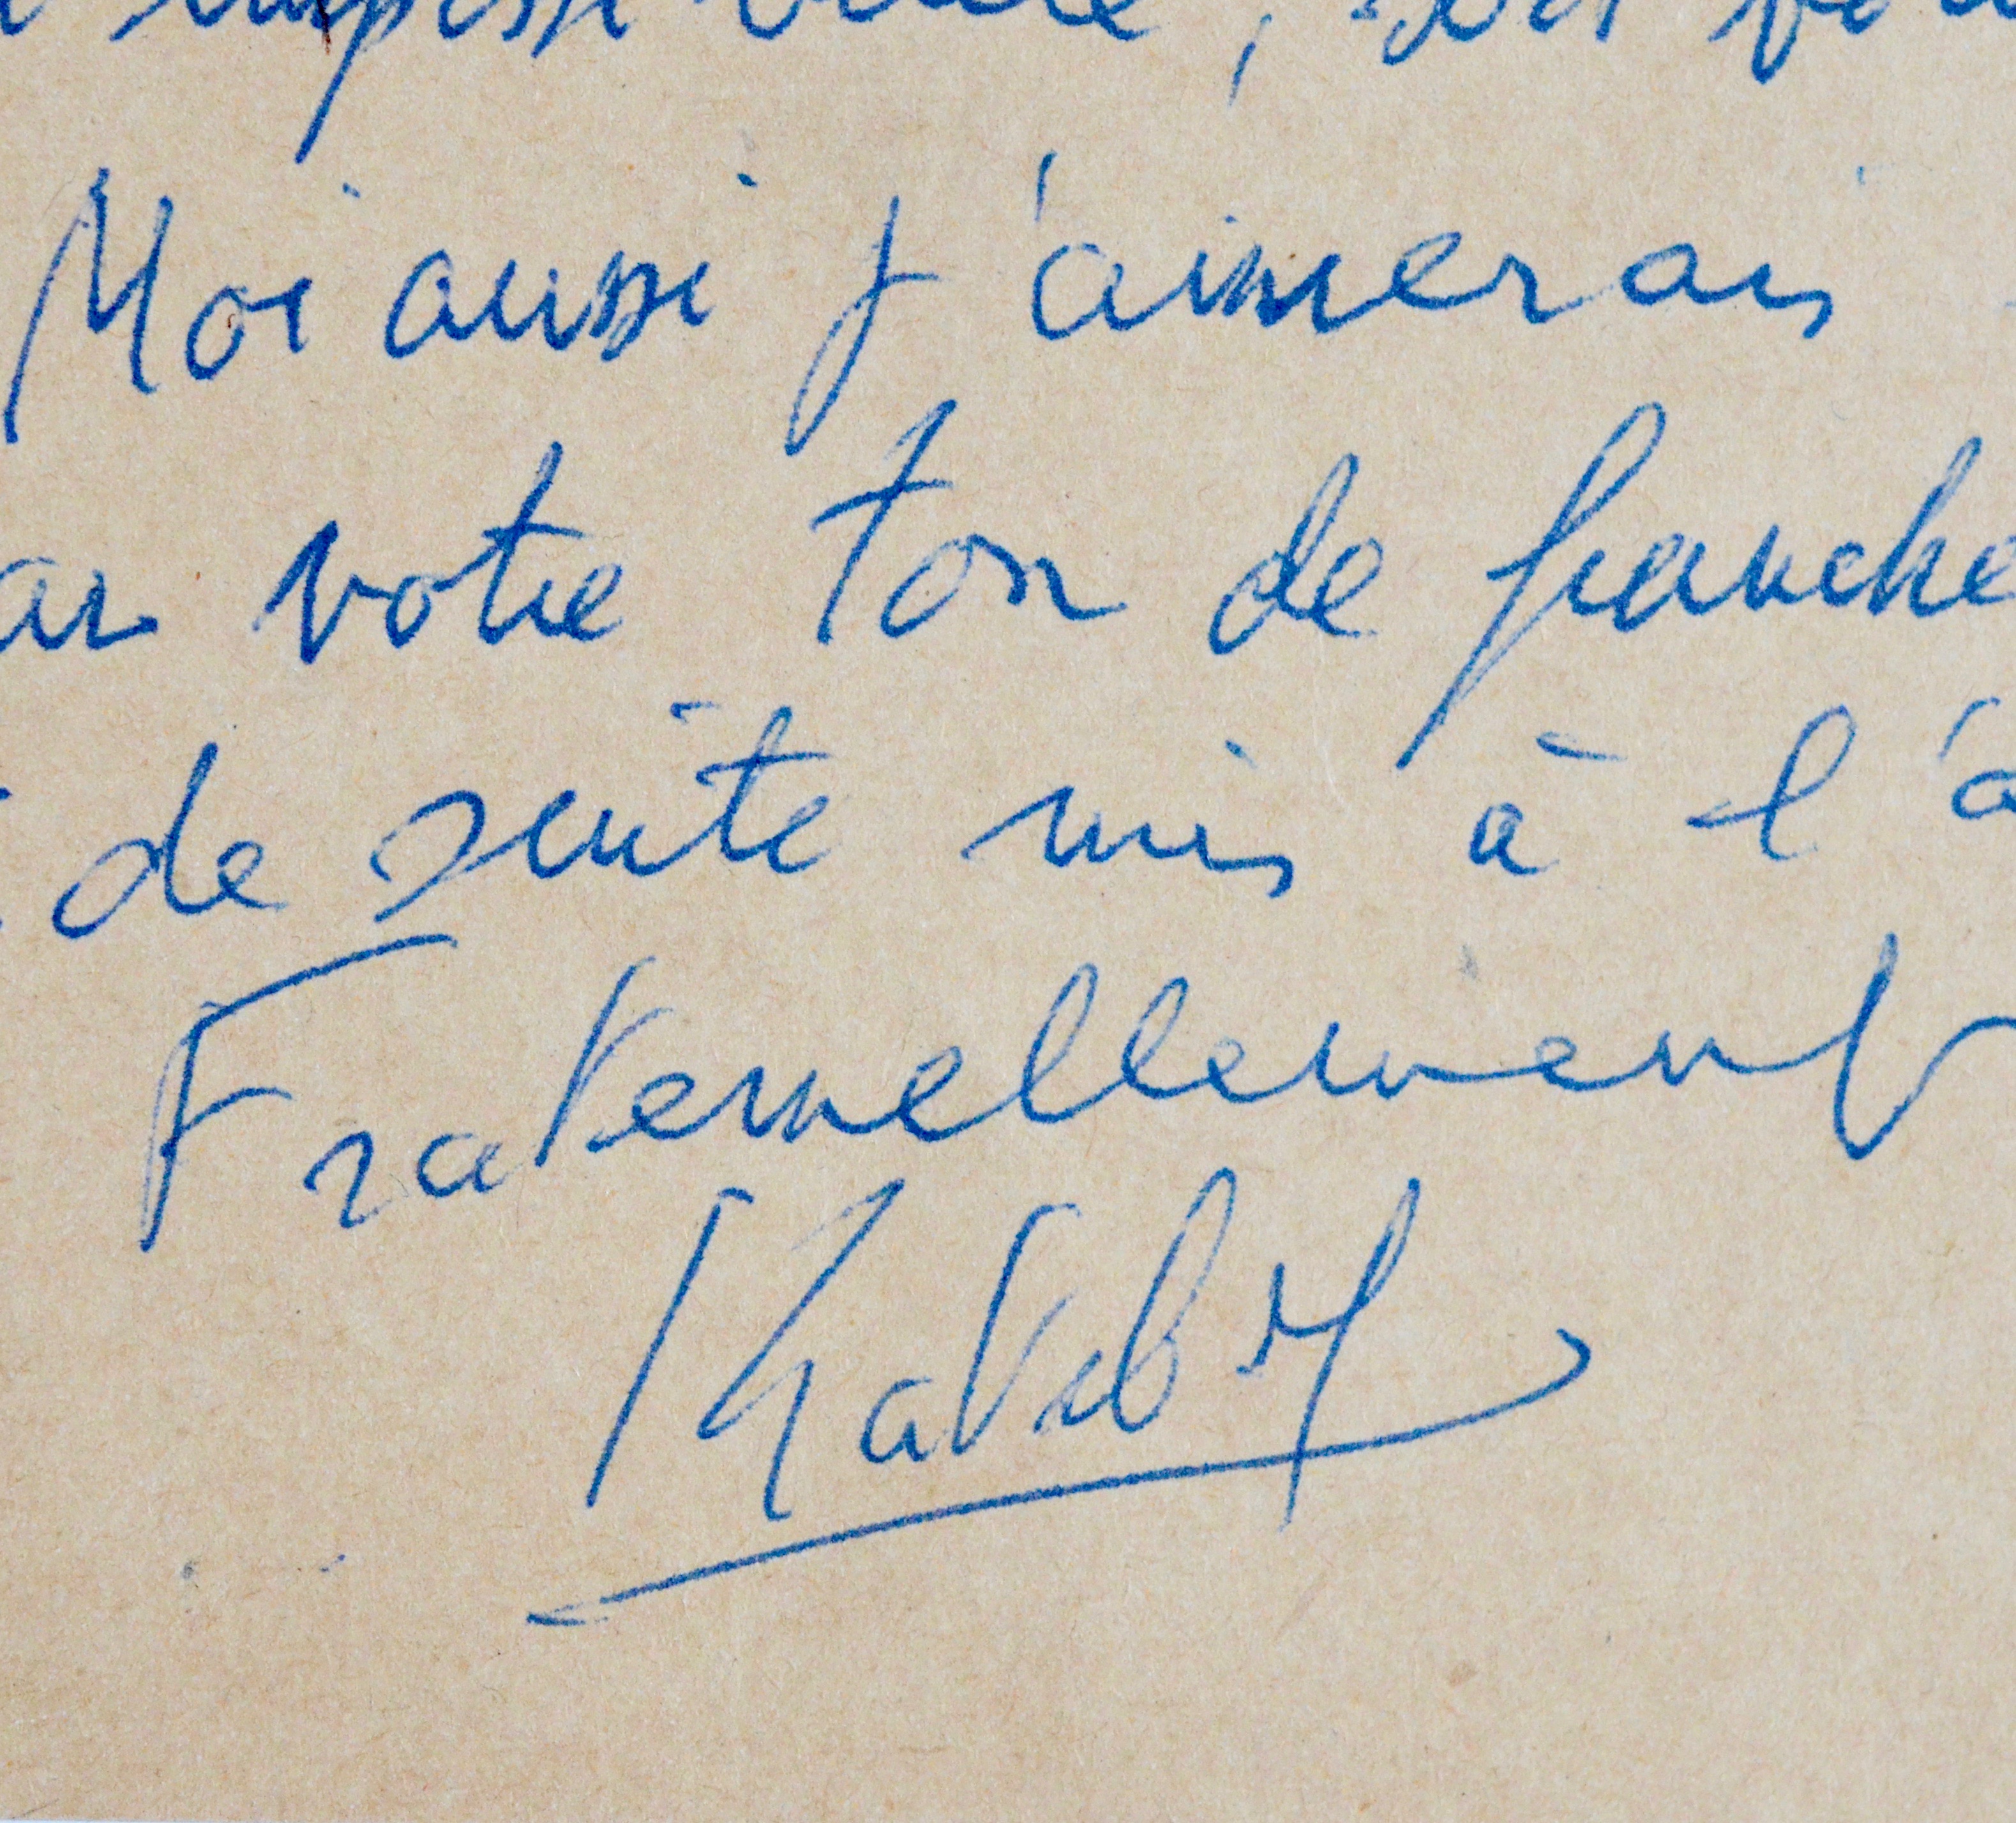 Moi aussi j'aimerais
votre ton de franche
de suite mis à l'a
Fraternellement
Kateb Y